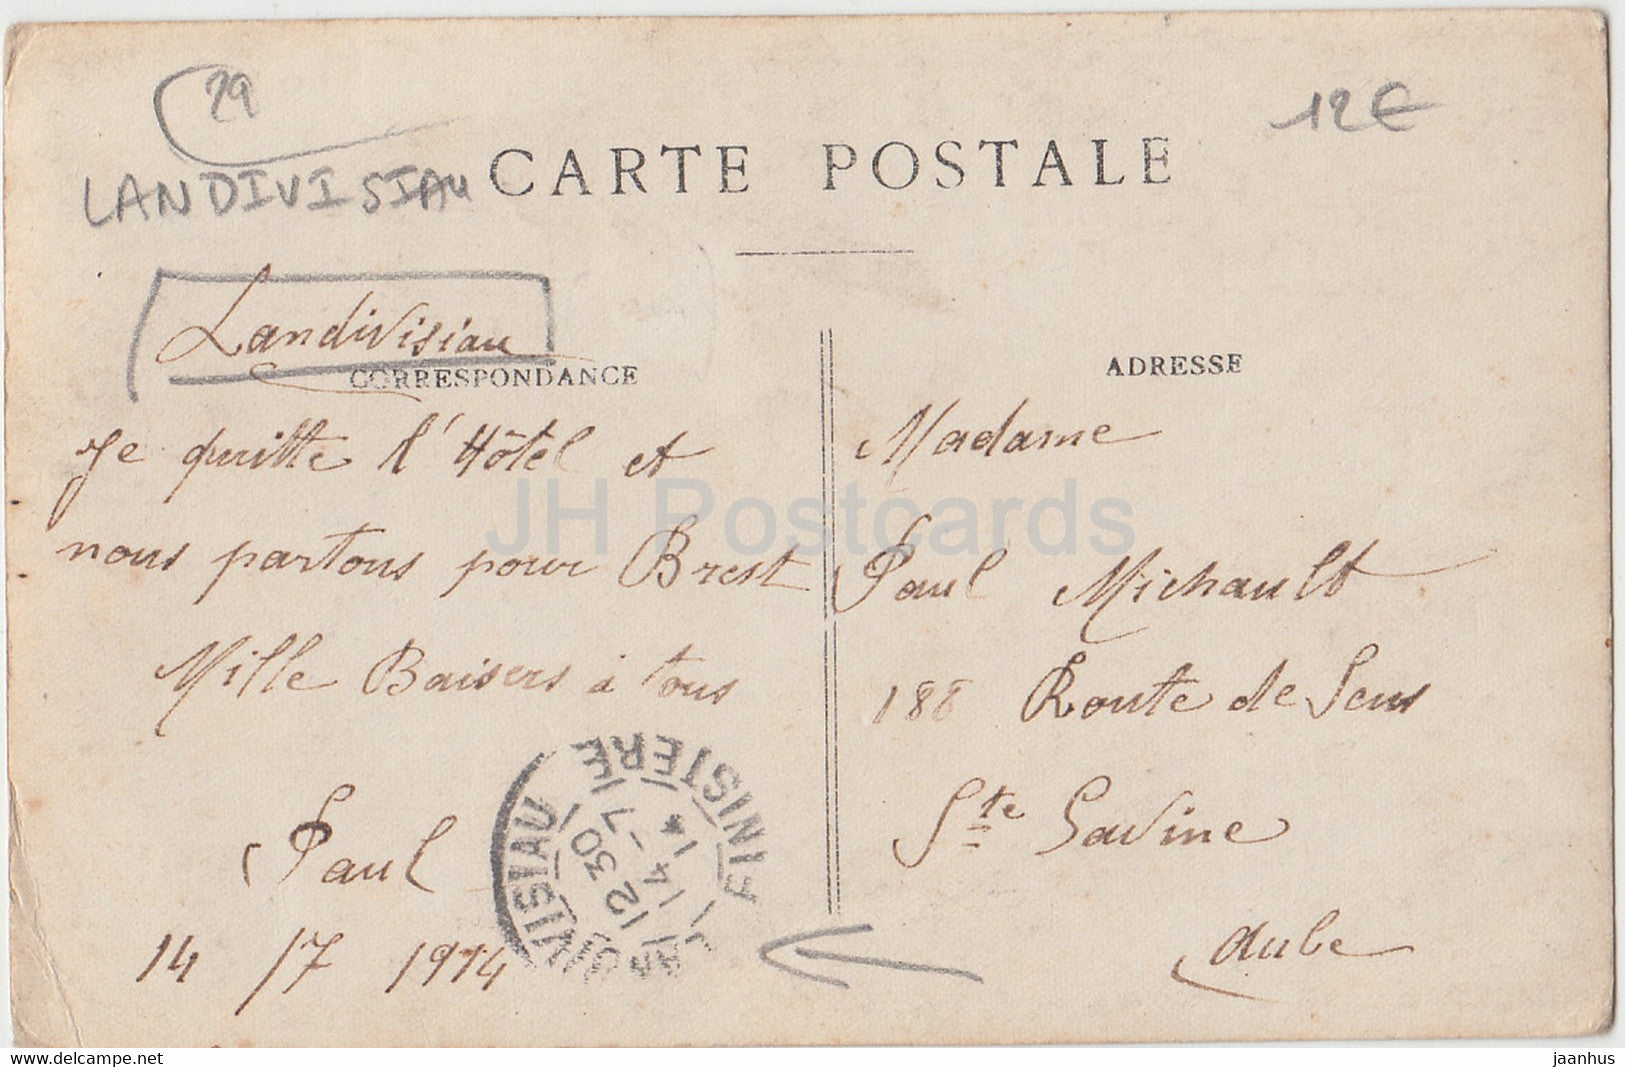 29
12€
LANDIVISIAU
CARTE POSTALE
Landivisiau
CORRESPONDANCE
Je quitte l'Hôtel et
nous partons pour Brest
Mille Baisers à tous
Paul
14 /7 1914
ADRESSE
Madame
Paul Michault
188 Route de Sens
Ste Savine
Aube
FINISTERE
12 30
14 -7
14
JH Postcards
www.delcampe.net
jaanhus